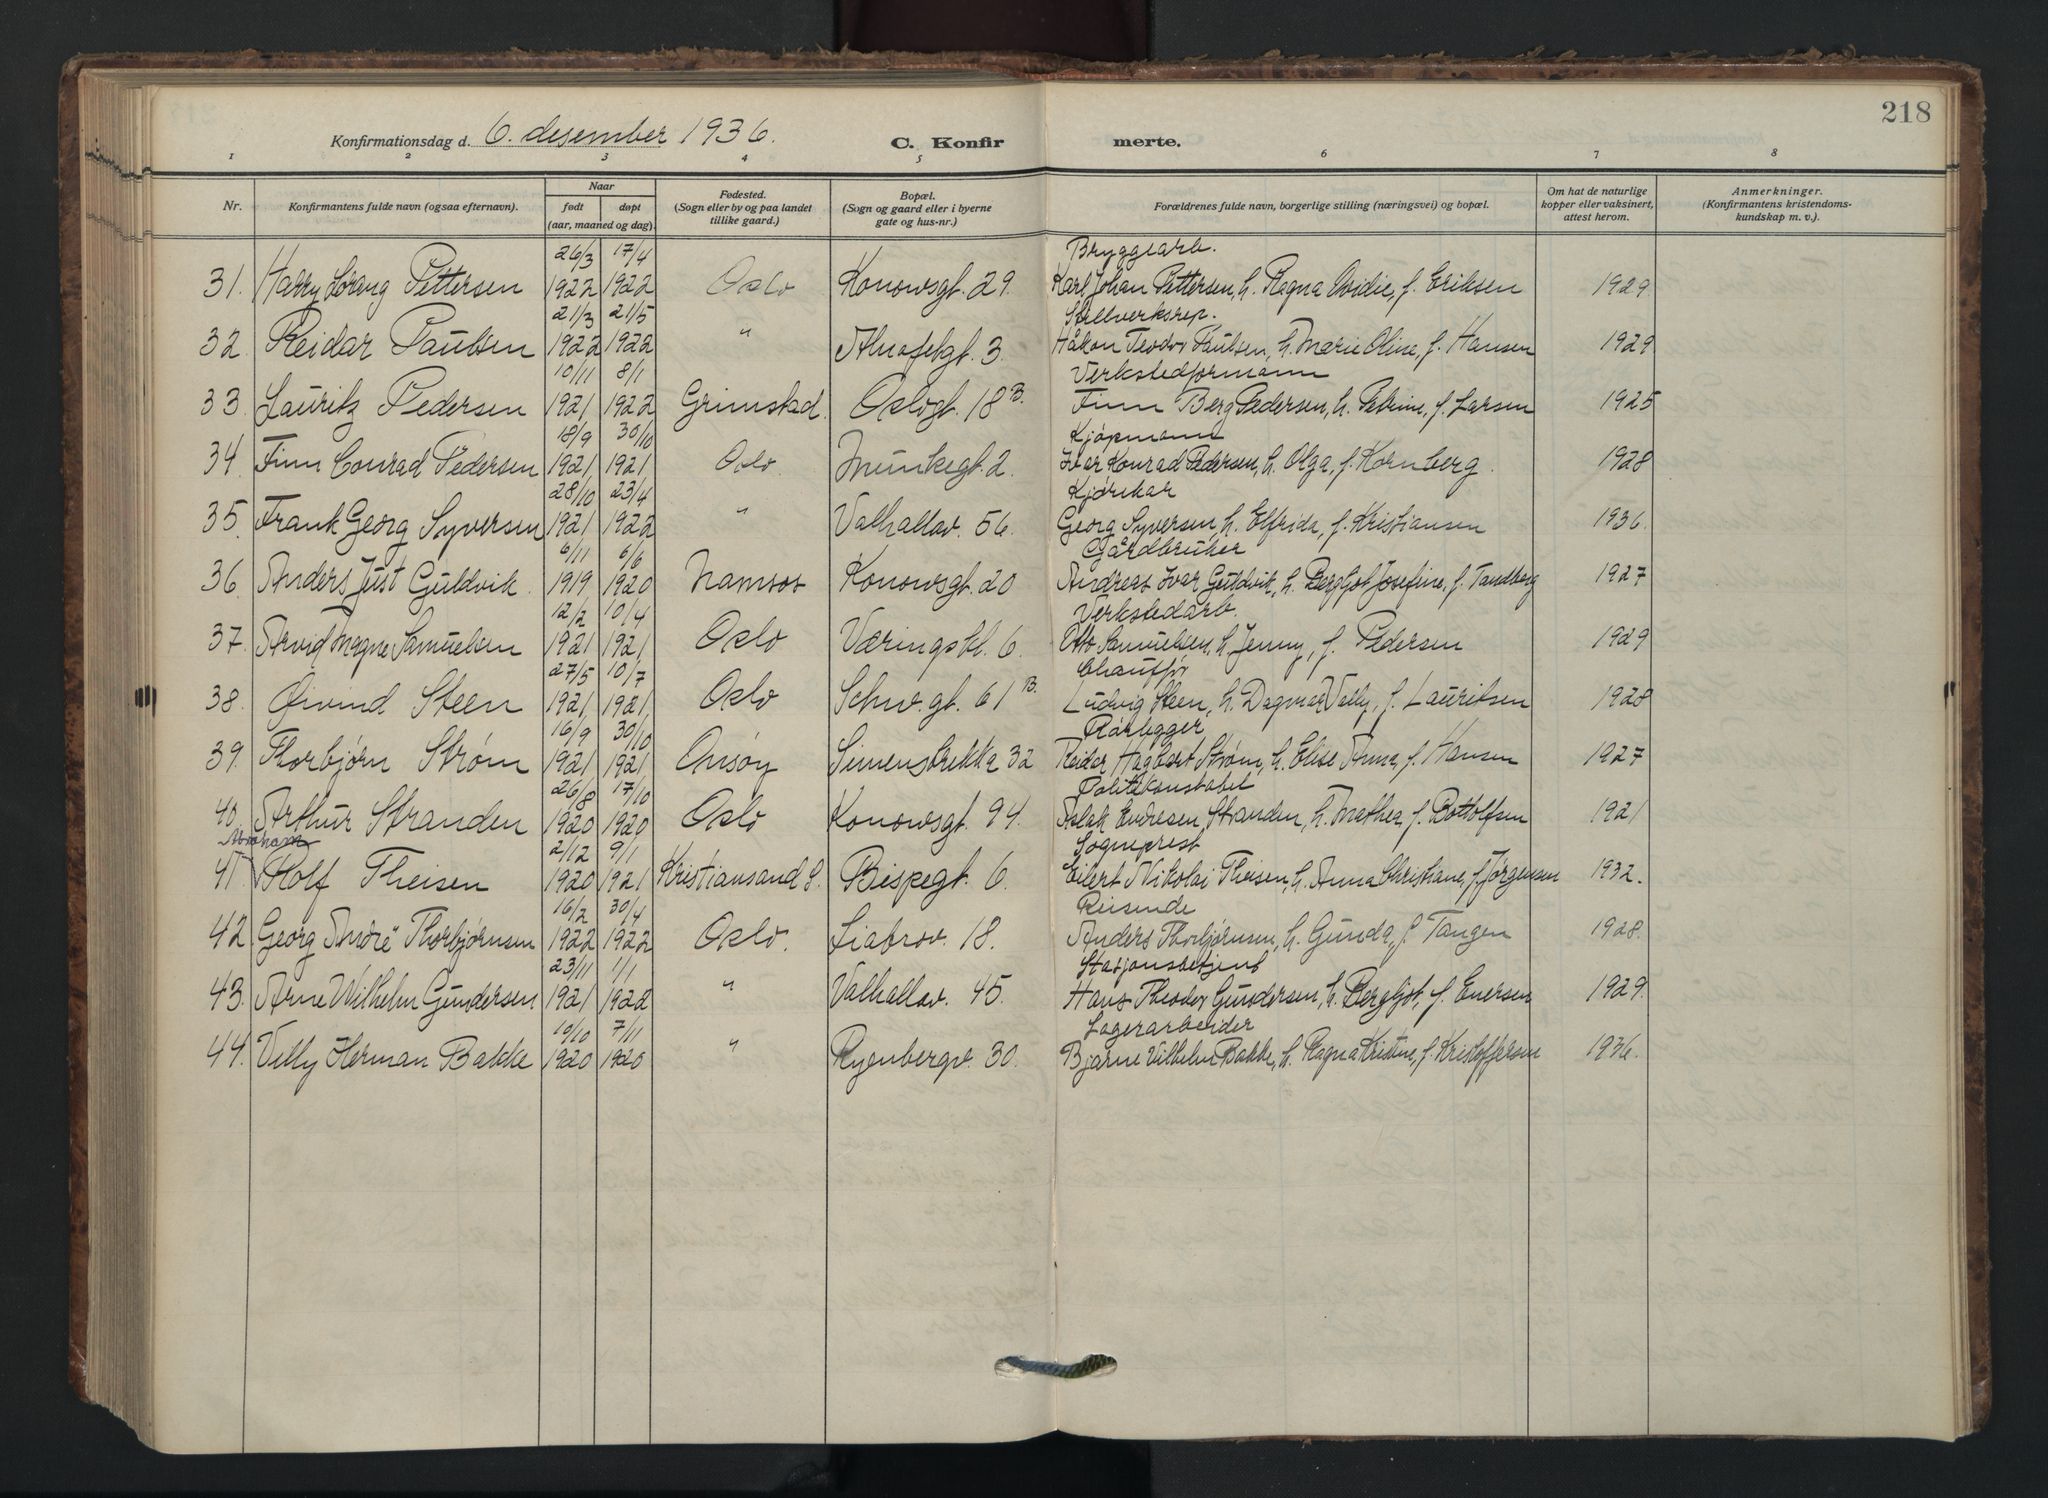 218
Konfirmationsdag d. 6. desember 1936.
C. Konfirmerte.
1 2 3 4 5 6 7 8
Nr.
Konfirmantens fulde navn (ogsaa efternavn).
Naar
født døpt
(aar, maaned og dag).
Fødested.
(Sogn eller by og paa landet
tillike gaard.)
Bopæl.
(Sogn og gaard eller i byerne
gate og hus-nr.)
Forældrenes fulde navn, borgerlige stilling (næringsvei) og bopæl.
Om hat de naturlige
kopper eller vaksinert,
attest herom.
Anmerkninger.
(Konfirmantens kristendoms-
kundskap m. v.).
26/3 17/4 Bryggearb.
31. Harry Pettersen 1922 1922 Oslo Konowsgt. 29. Karl Johan Pettersen, h. Ragna Ovidie, f. Eriksen 1929
21/3 21/5 Stillverksrep.
32. Reidar Paulsen 1922 1922 " 3. Håkon Teodor Paulsen, h. Marie Oline, f. Hansen 1929
10/11 8/1 Verkstedformann
33. Lauritz Pedersen 1921 1922 Grimstad. Oslogt. 18 B. Finn Berg Pedersen, h. Petrine, f. Larsen 1925
18/9 30/10 Kjøpmann
34. Finn Conrad Pedersen 1921 1921 Oslo Munkegt. 2. Ivar Konrad Pedersen, h. Olga, f. Kornberg. 1928
28/10 23/4 Kjørekar
35. Frank Georg Syversen 1921 1922 " Valhallav. 56. Georg Syversen, h. Elfrida, f. Kristiansen 1936.
6/11 6/6 Gårdbruker
36. Anders Just Guldvik. 1919 1920 Namsos Konowsgt. 20 Andreas Ivar Guldvik, h. Bergljot Josefine, f. Tandberg 1927
12/2 10/4 Verkstedarb.
37. Arvid Magne Samuelsen 1921 1921 Oslo Væringskl. 6. Otto Samuelsen, h. Jenny, f. Pedersen 1929
27/5 10/7 Chauffør
38. Øivind Steen 1921 1921 Oslo Schw.gt. 61 B. Ludvig Steen, h. Dagmar Vally, f. Lauritsen 1928
16/9 30/10 Rørlegger
39. Thorbjørn Strøm 1921 1921 Onsøy Simensbrekka 32 Reidar Hagbart Strøm, h. Elise Anna, f. Hansen 1927
26/8 17/10 Politikonstabel
40. Arthur Stranden 1920 1920 Oslo Konowsgt. 94. Aslak Endresen Stranden, h. Mathea f. Bottolfsen 1921
Abraham 2/12 9/1 Sogneprest
41. Rolf Theisen 1920 1921 Kristiansand S. Bispegt. 6. Eilert Nikolai Theisen, h. Anna Christiane, f. Jørgensen 1932.
16/2 30/4 Reisende
42. Georg André Thorbjørnsen 1922 1922 Oslo. Liabrov. 18. Anders Thorbjørnsen, h. Gunda, f. Tangen 1928.
23/11 1/1 Stasjonsbetjent
43. Arne Wilhelm Gundersen. 1921 1922 " Valhallav. 45. Hans Theodor Gundersen, h. Bergljot, f. Enersen 1929.
10/10 7/11 Lagerarbeider
44. Villy Herman Bakke 1920 1920 " Ryenbergv. 30. Bjarne Vilhelm Bakke, h. Ragna Kristine, f. Kristoffersen 1936.